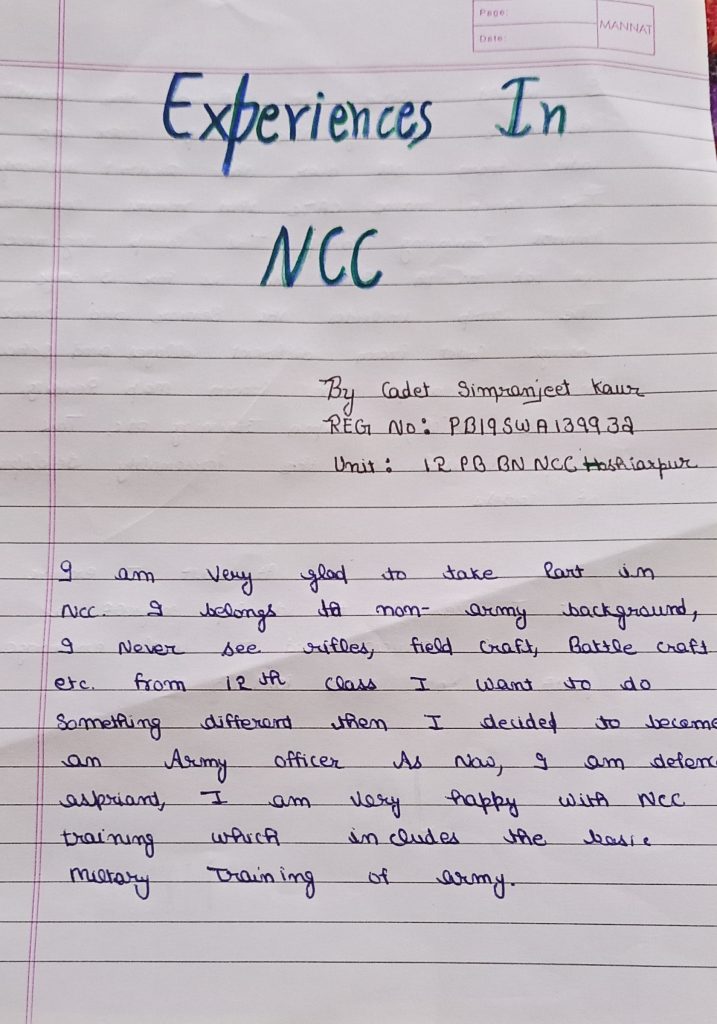 Page:
MANNAT
Date:
Experiences In
NCC
By Cadet Simranjeet Kaur
REG No: PB19SWA139932
Unit: 12 PB BN NCC Hoshiarpur
I am very glad to take Part in
NCC. I belongs to non- army background,
I Never see rifles, field craft, Battle craft
etc. from 12 th class I want to do
Something different then I decided to become
an Army officer As Now, I am defenc
aspriand, I am very happy with NCC
training which includes the basic
military Training of army.